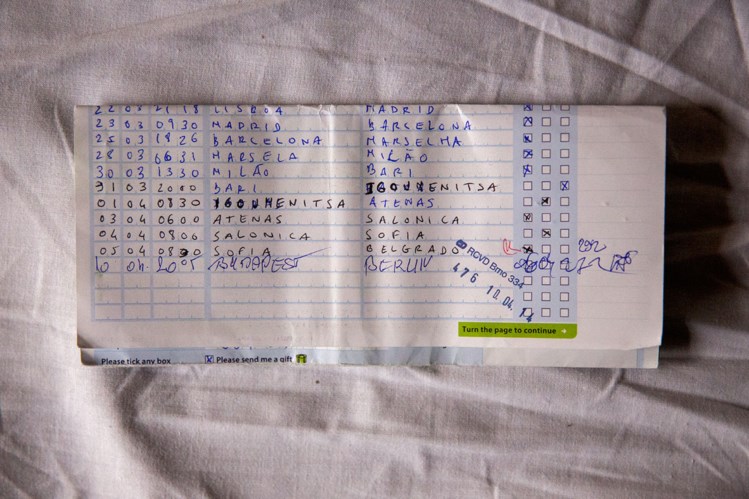 22 03 21 18 LISBOA MADRID
23 03 09 30 MADRID BARCELONA
25 03 18 26 BARCELONA MARSELHA
28 03 06 31 MARSELA MILÃO
30 03 13 30 MILÃO BARI
31 03 20 00 BARI IGOUMENITSA
01 04 08 30 IGOUMENITSA ATENAS
03 04 06 00 ATENAS SALONICA
04 04 08 00 SALONICA SOFIA
05 04 08 30 SOFIA BELGRADO
10 04 20 05 BUDAPEST BERLIN
RCVD Bmo 334
476 10.04.14
Turn the page to continue
Please tick any box Please send me a gift